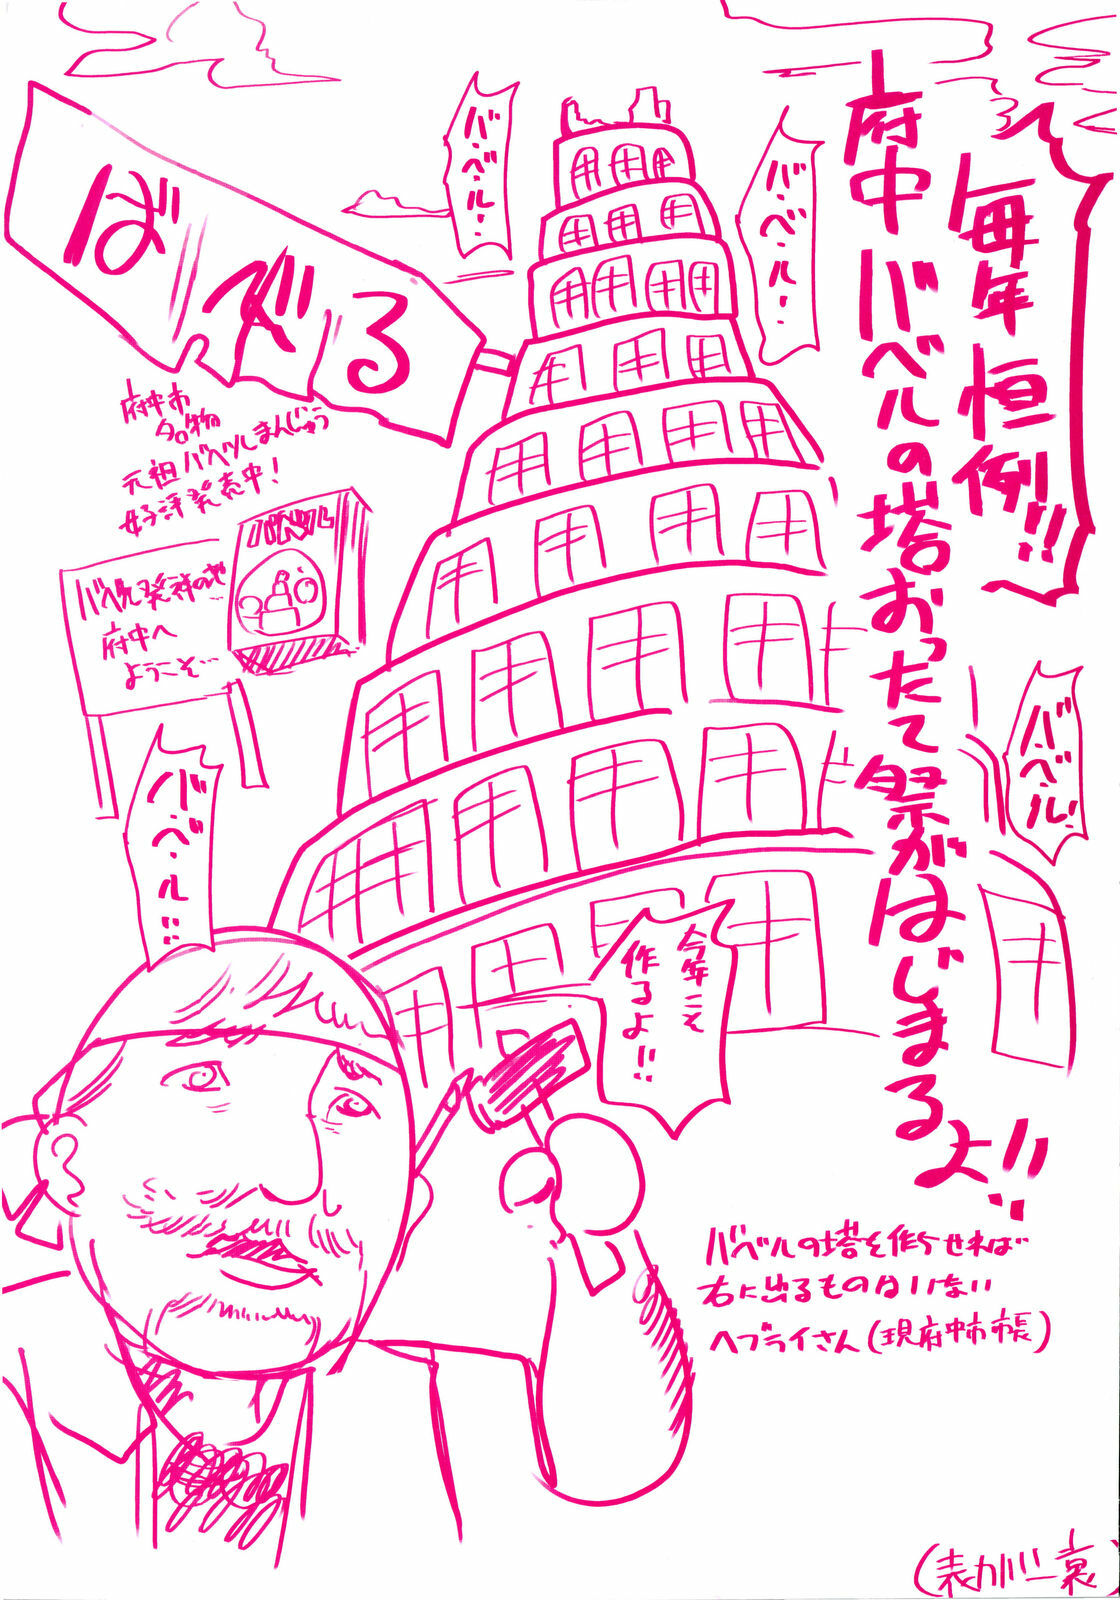 毎年恒例!!
府中バベルの塔おったて祭がはじまるよ!!
バ・ベ・ル・・
バ・ベ・ル・・
ばべる
府中市
名物
元祖バベルまんじゅう
好評発売中!
バベル
バベル発祥の地
府中へ
ようこそ…
バ・ベ・ル!
バ・ベ・ル!!
今年こそ
作るよ!!
バベルの塔を作らせれば
右に出るものはいない
ヘブライさん(現府中市市長)
(表カバー裏)